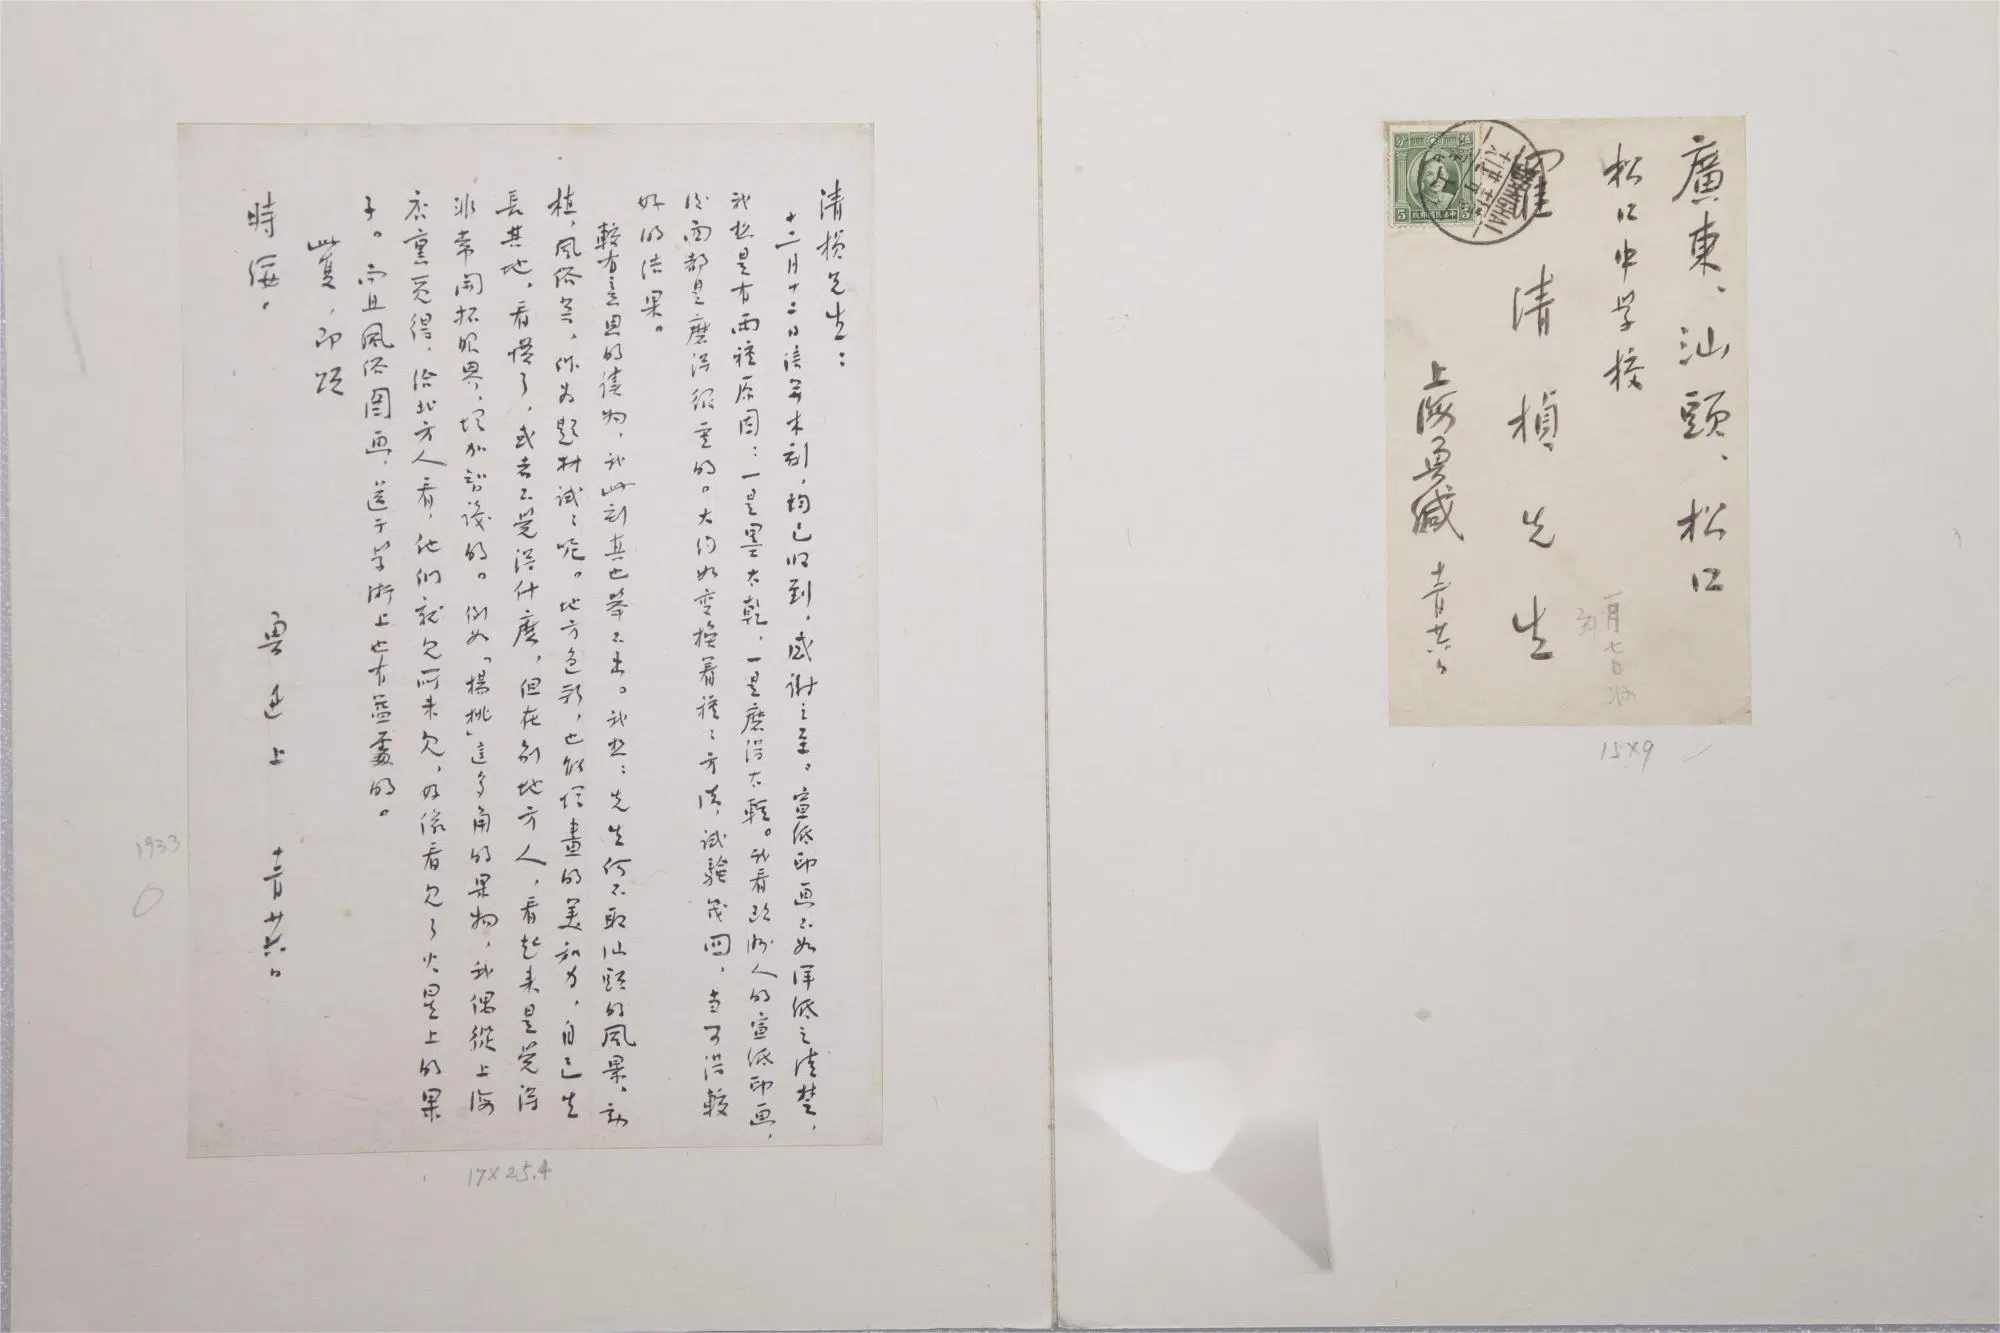 清楨先生：
十二月十三日信并木刻，均已收到，感谢之至。宣纸印画不如洋纸之清楚，
我想是有两种原因：一是墨太乾，一是磨得太轻。我看欧洲人的宣纸印画，
后面都是磨得很重的。大约如变换着种々方法，试验几回，当可得较
好的结果。
較有意思的读物，我此刻真也举不出。我想：先生何不取汕頭的风景，动
植，风俗等，作为题材试々呢。地方色彩，也能增畫的美和力，自己生
長其地，看惯了，或者不觉得什麽，但在别地方人，看起来是觉得
非常開拓眼界，增加智識的。例如「楊桃」這多角的果物，我偶從上海
店裏觅得，给北方人看，他们就见所未见，好像看见了火星上的果
子。而且風俗图画，还于学術上也有益處的。
此复，即頌
時绥。
鲁迅上 十二月廿六日
1933
17×25.4
廣東、汕頭、松口
松口中学校
羅清楨先生
上海鲁缄 十二月廿六日
一月七日
到
15×9
SHANGHAI
5
5